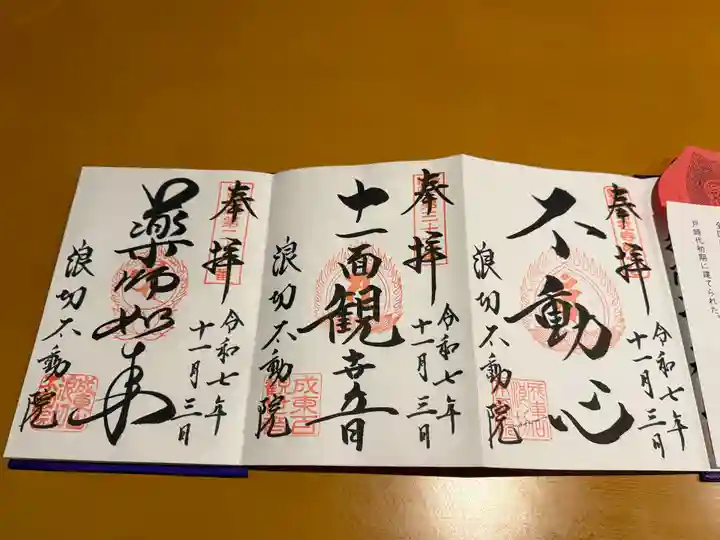 奉拝
不動心
令和七年
十一月三日
浪切不動院
奉拝
十一面観世音
令和七年
十一月三日
浪切不動院
成東山
奉拝
薬師如来
令和七年
十一月三日
浪切不動院
戸時代初期に建てられた。